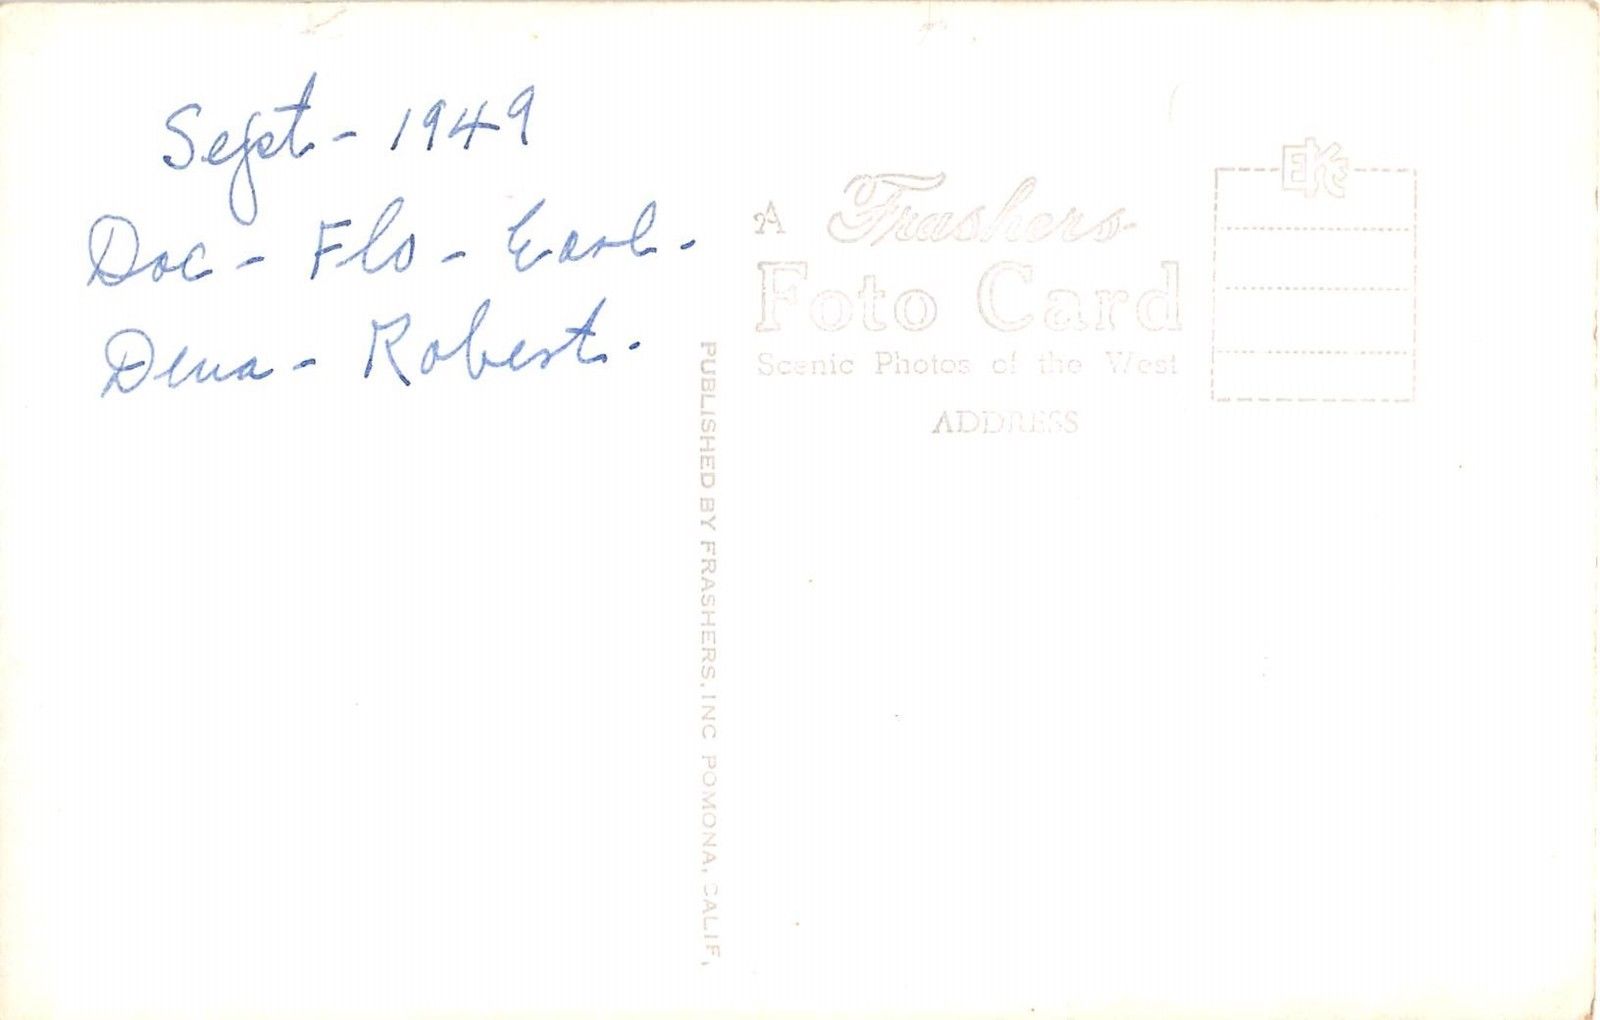 Sept - 1949
Doc - Flo - Earl.
Dena - Robert.
PUBLISHED BY FRASHERS, INC POMONA, CALIF,
A Frashers
Foto Card
Scenic Photos of the West
ADDRESS
EKC